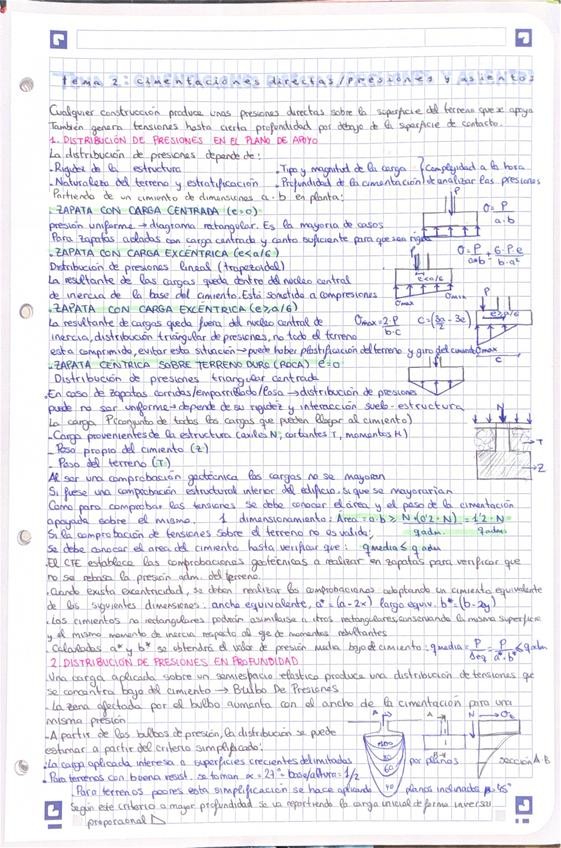 Tema 2: cimentaciones directas/presiones y asientos
Cualquier construcción produce unas presiones directas sobre la superficie del terreno que x apoya
También genera tensiones hasta cierta profundidad por debajo de la superficie de contacto.
1. DISTRIBUCIÓN DE PRESIONES EN EL PLANO DE APOYO
La distribución de presiones depende de:
- Rigidez de la estructura - Tipo y magnitud de la carga } Complejidad a la hora
- Naturaleza del terreno y estratificación - Profundidad de la cimentación de analizar las presiones
Partiendo de un cimiento de dimensiones a·b en planta:
- ZAPATA CON CARGA CENTRADA (e=0)
presión uniforme → diagrama rectangular. Es la mayoría de casos
Para zapatas aisladas con carga centrada y canto suficiente para que sea rígida
P
σ = P / a·b
- ZAPATA CON CARGA EXCÉNTRICA (e<a/6)
Distribución de presiones lineal (trapezoidal)
La resultante de las cargas queda dentro del nucleo central
de inercia de la base del cimiento. Está sometido a compresiones
σ = P / a·b + 6·P·e / b·a²
P
e<a/6
σmax σmin
- ZAPATA CON CARGA EXCÉNTRICA (e≥a/6)
La resultante de cargas queda fuera del nucleo central de
inercia, distribución triángular de presiones, no todo el terreno
esta comprimido, evitar esta situación → puede haber plastificación del terreno y giro del cimiento
σmax = 2·P / b·c C = (3a/2 - 3e)
P
e≥a/6
σmax
c
- ZAPATA CÉNTRICA SOBRE TERRENO DURO (ROCA) e=0
Distribución de presiones triangular centrada
- En caso de zapatas corridas/emparrillado/losa → distribución de presiones
puede no ser uniforme → depende de su rigidez y interacción suelo-estructura
La carga P (conjunto de todas las cargas que pueden llegar al cimiento)
- Carga provenientes de la estructura (axiles N, cortantes T, momentos M)
- Peso propio del cimiento (Z)
- Peso del terreno (T)
N
T
Z
Al ser una comprobación geotécnica las cargas no se mayoran
Si fuese una comprobación estructural interior del edificio, si que se mayorarían
Como para comprobar las tensiones se debe conocer el área y el peso de la cimentación
apoyada sobre el mismo. 1 dimensionamiento: Area = a·b ≥ N+(0'2·N) / qadm. = 1'2·N / qadm.
Si la comprobación de tensiones sobre el terreno no es valida,
se debe conocer el area del cimiento hasta verificar que: qmedia ≤ q adm
- El CTE establece las comprobaciones geotécnicas a realizar en zapatas para verificar que
no se rebasa la presión adm. del terreno.
- Cuando exista excentricidad, se deben realizar las comprobaciones adoptando un cimiento equivalente
de las siguientes dimensiones: ancho equivalente, a* = (a-2x) largo equiv. b* = (b-2y)
- Los cimientos no rectangulares podrán asimilarse a otros rectangulares, conservando la misma superficie
y el mismo momento de inercia respecto al eje de momentos resultantes
- Calculadas a* y b* se obtendrá el valor de presión media bajo de cimiento: qmedia = P / Seq = P / a*·b* ≤ qadm
2. DISTRIBUCIÓN DE PRESIONES EN PROFUNDIDAD
- Una carga aplicada sobre un semiespacio elástico produce una distribución de tensiones que
se concentra bajo del cimiento → Bulbo De Presiones
- La zona afectada por el bulbo aumenta con el ancho de la cimentación para una
misma presión
- A partir de los bulbos de presión, la distribución se puede
estimar a partir del criterio simplificado:
- La carga aplicada interesa a superficies crecientes delimitadas por planos
- Para terrenos con buena resist. se toman α = 27° - base/altura = 1/2
- Para terrenos peores esta simplificación se hace aplicando planos inclinados 45°
Según este criterio a mayor profundidad se va repartiendo la carga inicial de forma inversa
proporcional
A
A
B
N
σz
100
80
60
40
sección A·B